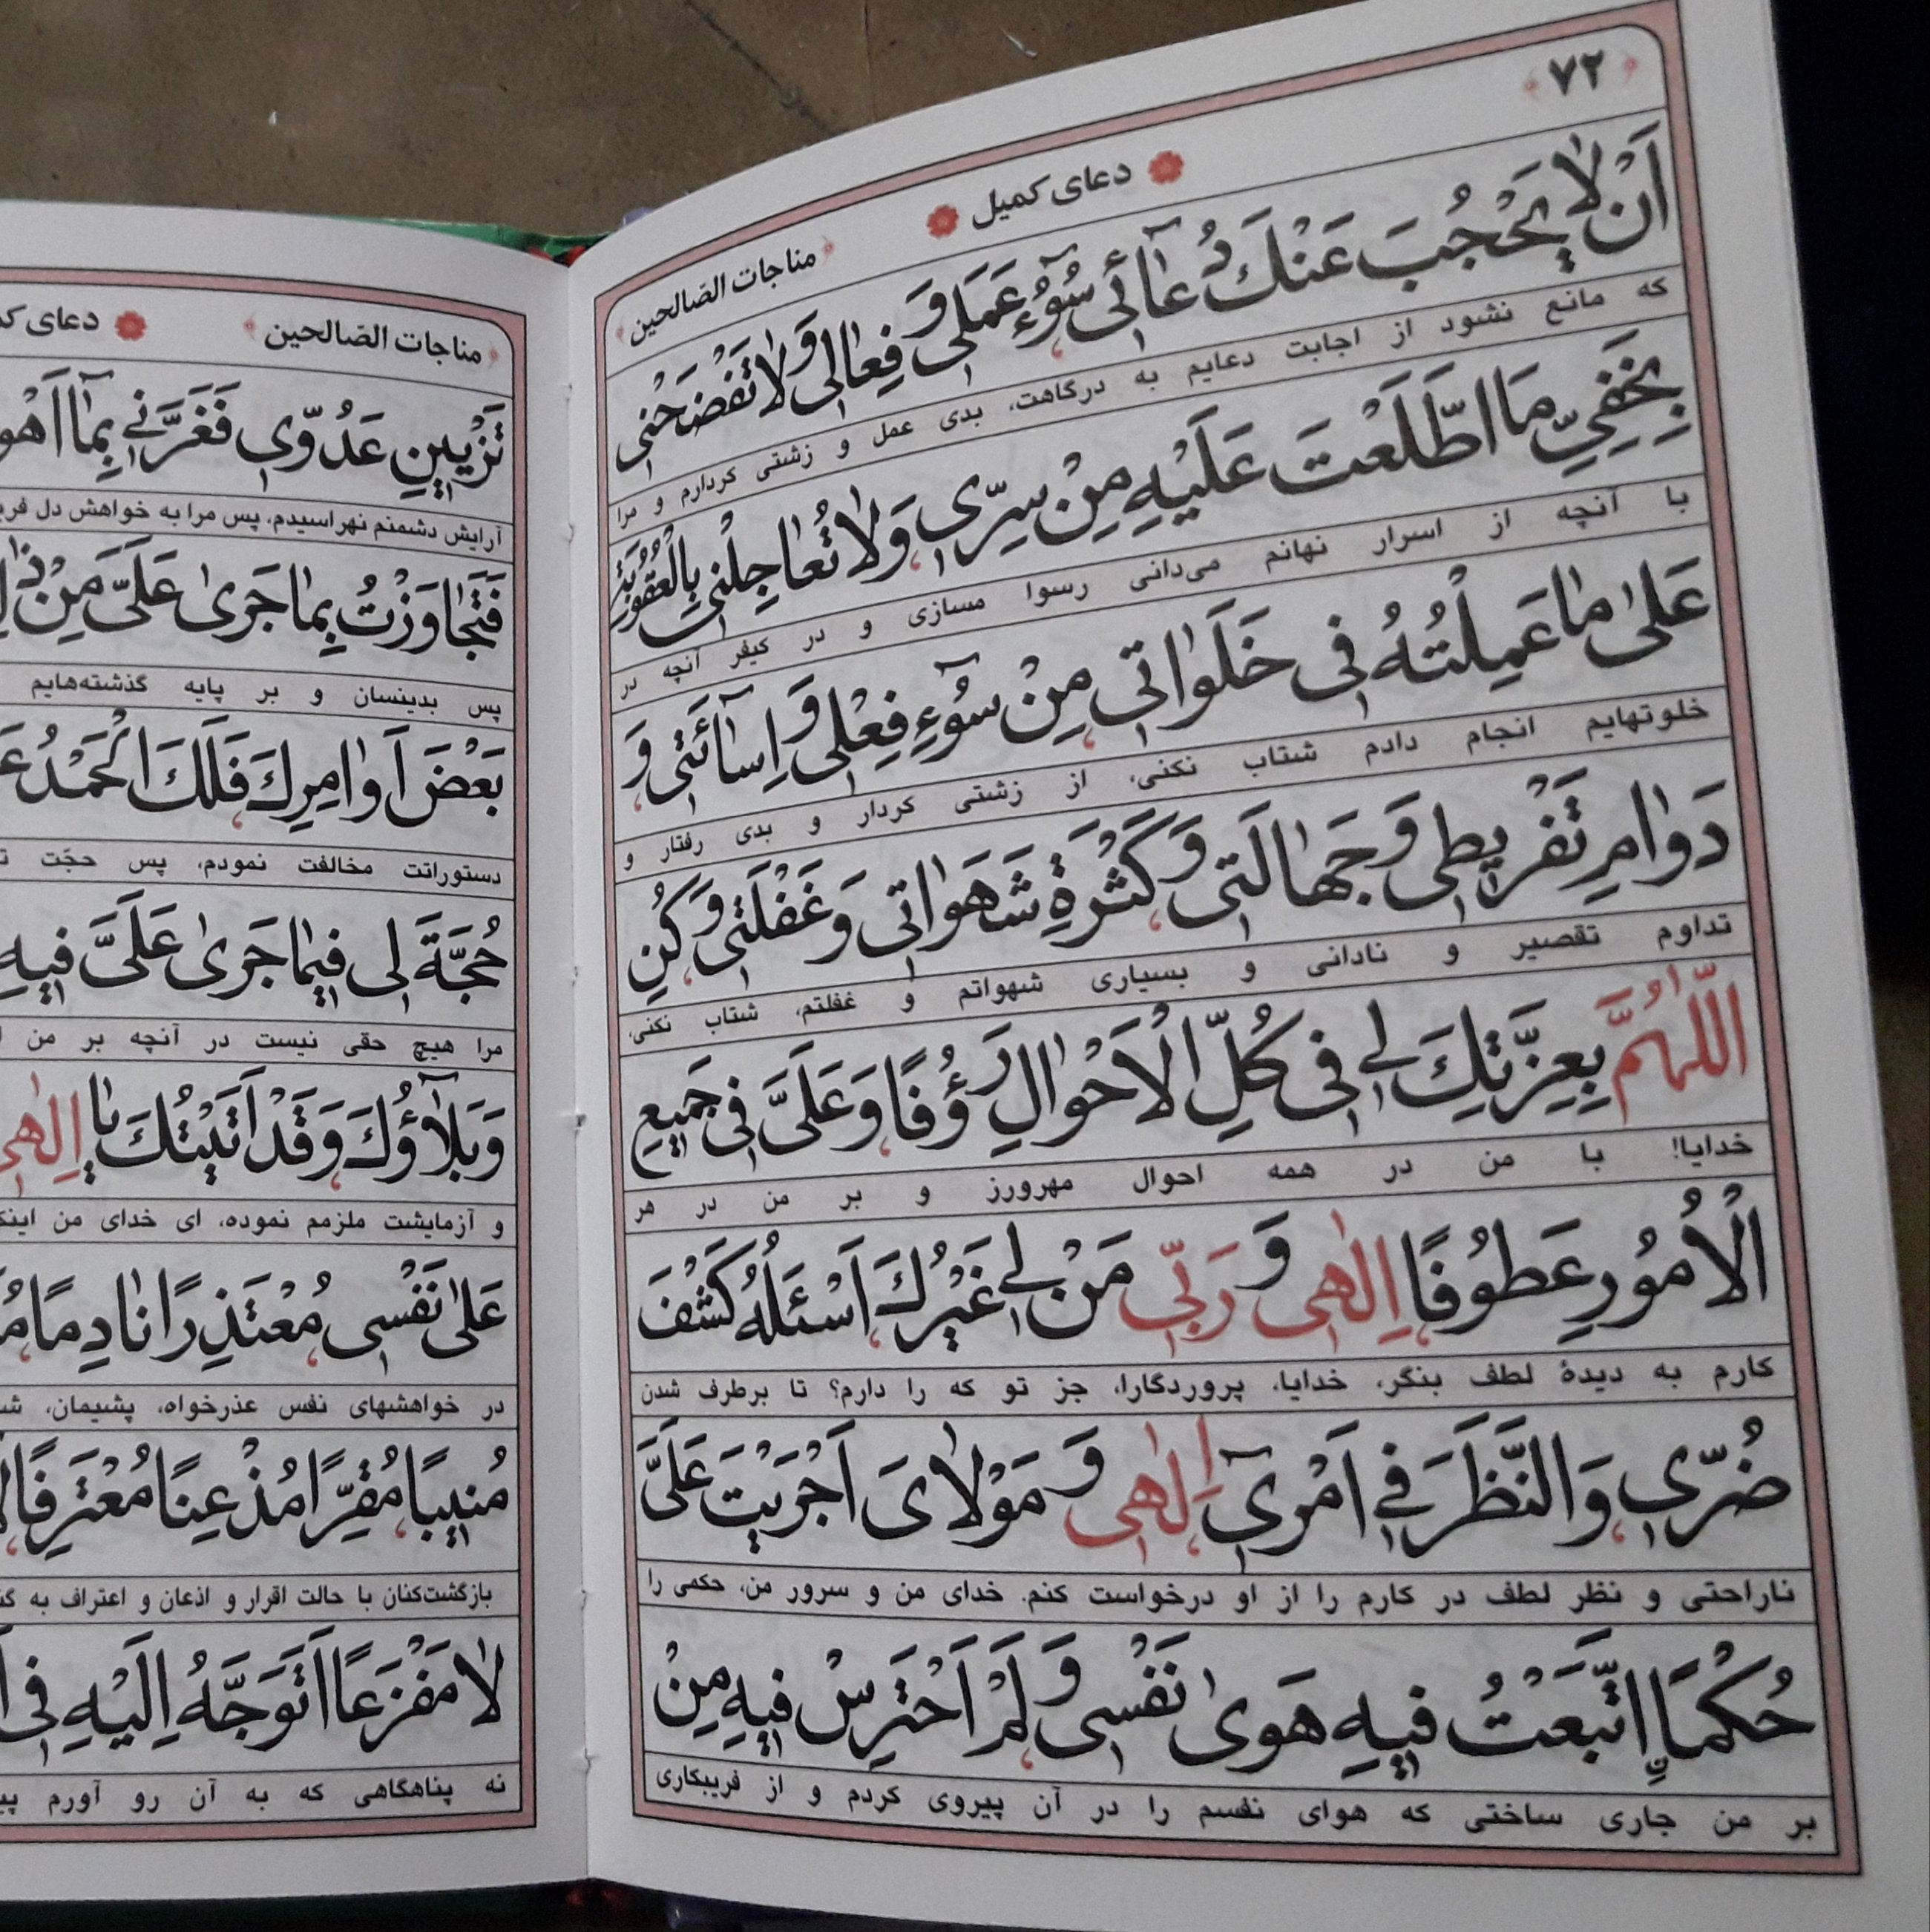 ۷۲
دعای کمیل
مناجات الصّالحین
اَنْ لا يَحْجُبَ عَنْكَ دُعآئى سُوٓءُ عَمَلى وَ فِعالى وَ لا تَفْضَحْنى
که مانع نشود از اجابت دعایم به درگاهت، بدی عمل و زشتی کردارم و مرا
بِخَفِىِّ مَا اطَّلَعْتَ عَلَيْهِ مِنْ سِرّى وَ لا تُعاجِلْنى بِالْعُقُوبَةِ
با آنچه از اسرار نهانم می‌دانی رسوا مسازی و در کیفر آنچه در
عَلىٰ ما عَمِلْتُهُ فى خَلَواتى مِنْ سُوٓءِ فِعْلى وَ اِسآئَتى وَ
خلوتهایم انجام دادم شتاب نکنی، از زشتی کردار و بدی رفتار و
دَوامِ تَفْريطى وَ جَهالَتى وَ كَثْرَةِ شَهَواتى وَ غَفْلَتى وَ كُنِ
تداوم تقصیر و نادانی و بسیاری شهواتم و غفلتم، شتاب نکنی،
اَللّٰهُمَّ بِعِزَّتِكَ لى فى كُلِّ الْاَحْوالِ رَؤُفًا وَ عَلَىَّ فى جَميعِ
خدایا! با من در همه احوال مهرورز و بر من در هر
الْاُمُورِ عَطُوفًا اِلٰهى وَ رَبّى مَنْ لى غَيْرُكَ اَسْئَلُهُ كَشْفَ
کارم به دیدهٔ لطف بنگر، خدایا، پروردگارا، جز تو که را دارم؟ تا برطرف شدن
ضُرّى وَ النَّظَرَ فى اَمْرىٓ اِلٰهى وَ مَوْلاىَ اَجْرَيْتَ عَلَىَّ
ناراحتی و نظر لطف در کارم را از او درخواست کنم. خدای من و سرور من، حکمی را
حُكْمًا اِتَّبَعْتُ فيهِ هَوىٰ نَفْسى وَ لَمْ اَحْتَرِسْ فيهِ مِنْ
بر من جاری ساختی که هوای نفسم را در آن پیروی کردم و از فریبکاری
مناجات الصّالحین
دعای
تَزْيينِ عَدُوّى فَغَرَّنى بِمآ
آرایش دشمنم نهراسیدم، پس مرا به خواهش دل
فَتَجاوَزْتُ بِما جَرىٰ عَلَىَّ مِنْ
پس بدینسان و بر پایه گذشته‌هایم
بَعْضَ اَوامِرِكَ فَلَكَ الْحَمْدُ
دستوراتت مخالفت نمودم، پس حجّت
حُجَّةَ لى فيما جَرىٰ عَلَىَّ فيهِ
مرا هیچ حقی نیست در آنچه بر من
وَ بَلآؤُكَ وَ قَدْ اَتَيْتُكَ يا اِلٰهى
و آزمایشت ملزمم نموده، ای خدای من
عَلىٰ نَفْسى مُعْتَذِرًا نادِمًا
در خواهشهای نفس عذرخواه، پشیمان،
مُنيبًا مُقِرًّا مُذْعِنًا مُعْتَرِفًا
بازگشت‌کنان با حالت اقرار و اذعان و اعتراف به
لا مَفْزَعًا اَتَوَجَّهُ اِلَيْهِ فى
نه پناهگاهی که به آن رو آورم